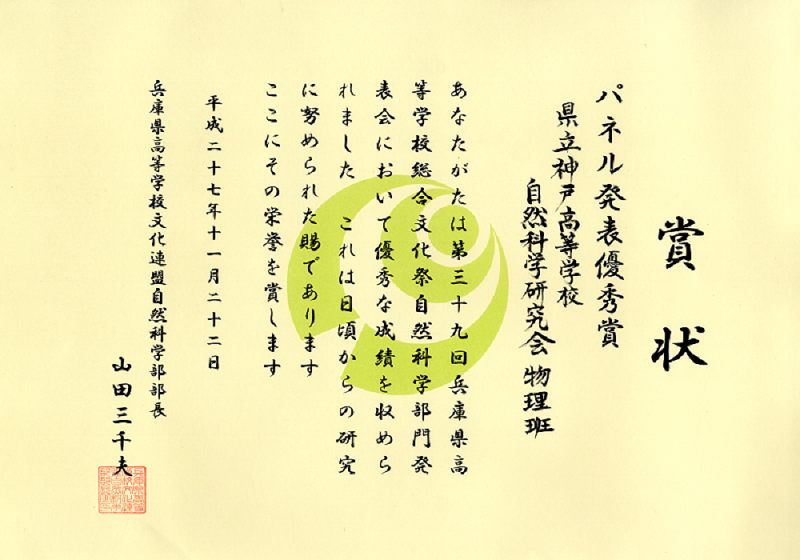 賞状
パネル発表優秀賞
県立神戸高等学校
自然科学研究会物理班
あなたがたは第三十九回兵庫県高
等学校総合文化祭自然科学部門発
表会において優秀な成績を収めら
れました これは日頃からの研究
に努められた賜であります
ここにその栄誉を賞します
平成二十七年十一月二十二日
兵庫県高等学校文化連盟自然科学部部長
山田三千夫